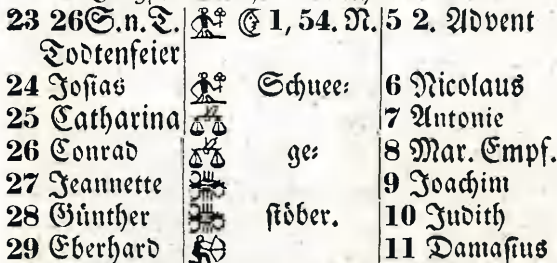 23 26S.n.T. ☾ 1, 54. N. 5 2. Advent
Todtenfeier
24 Josias Schnee⸗ 6 Nicolaus
25 Catharina 7 Antonie
26 Conrad ge⸗ 8 Mar. Empf.
27 Jeannette 9 Joachim
28 Günther stöber. 10 Judith
29 Eberhard 11 Damasius